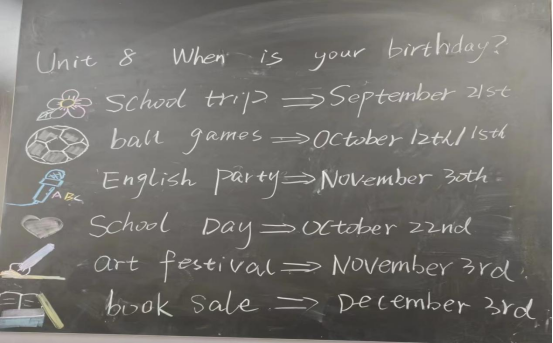 Unit 8 When is your birthday?
School trip ⇒ September 21st
ball games ⇒ October 12th/15th
English party ⇒ November 30th
ABC
School Day ⇒ October 22nd
art festival ⇒ November 3rd.
book sale ⇒ December 3rd